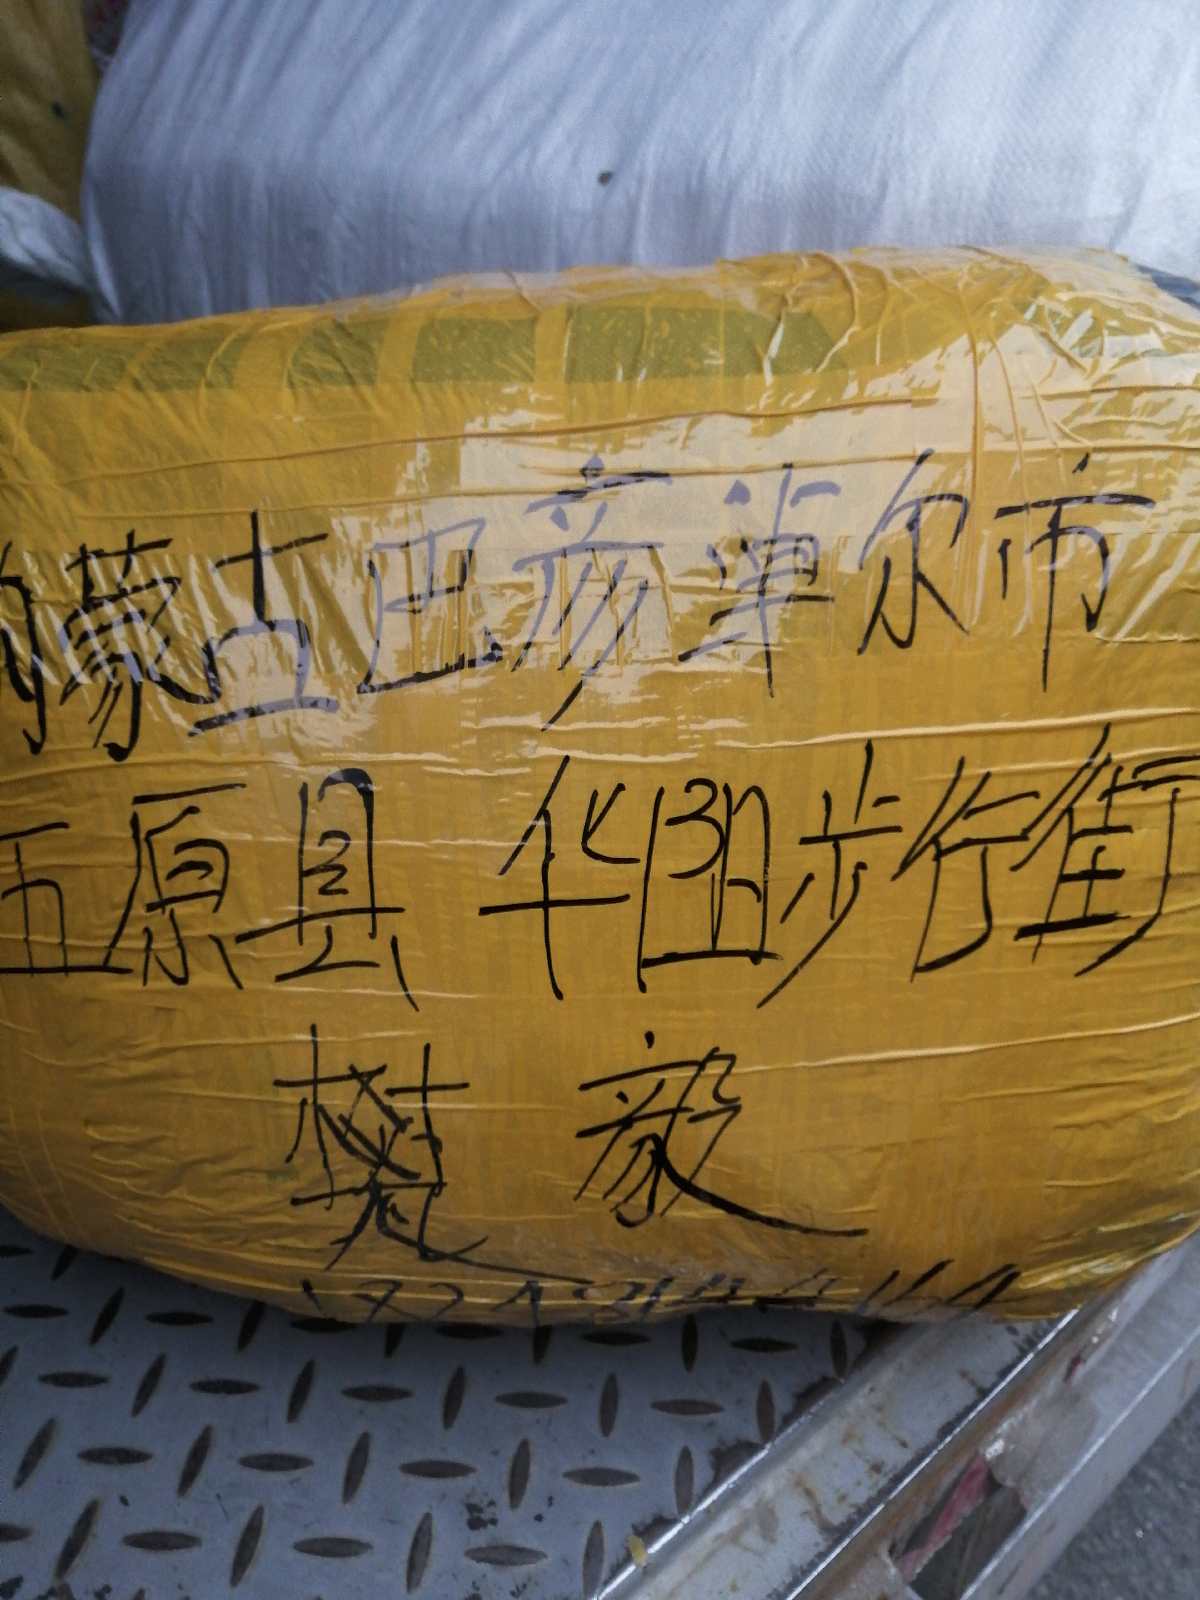 内蒙古巴彦淖尔市
五原县 华图步行街
樊毅